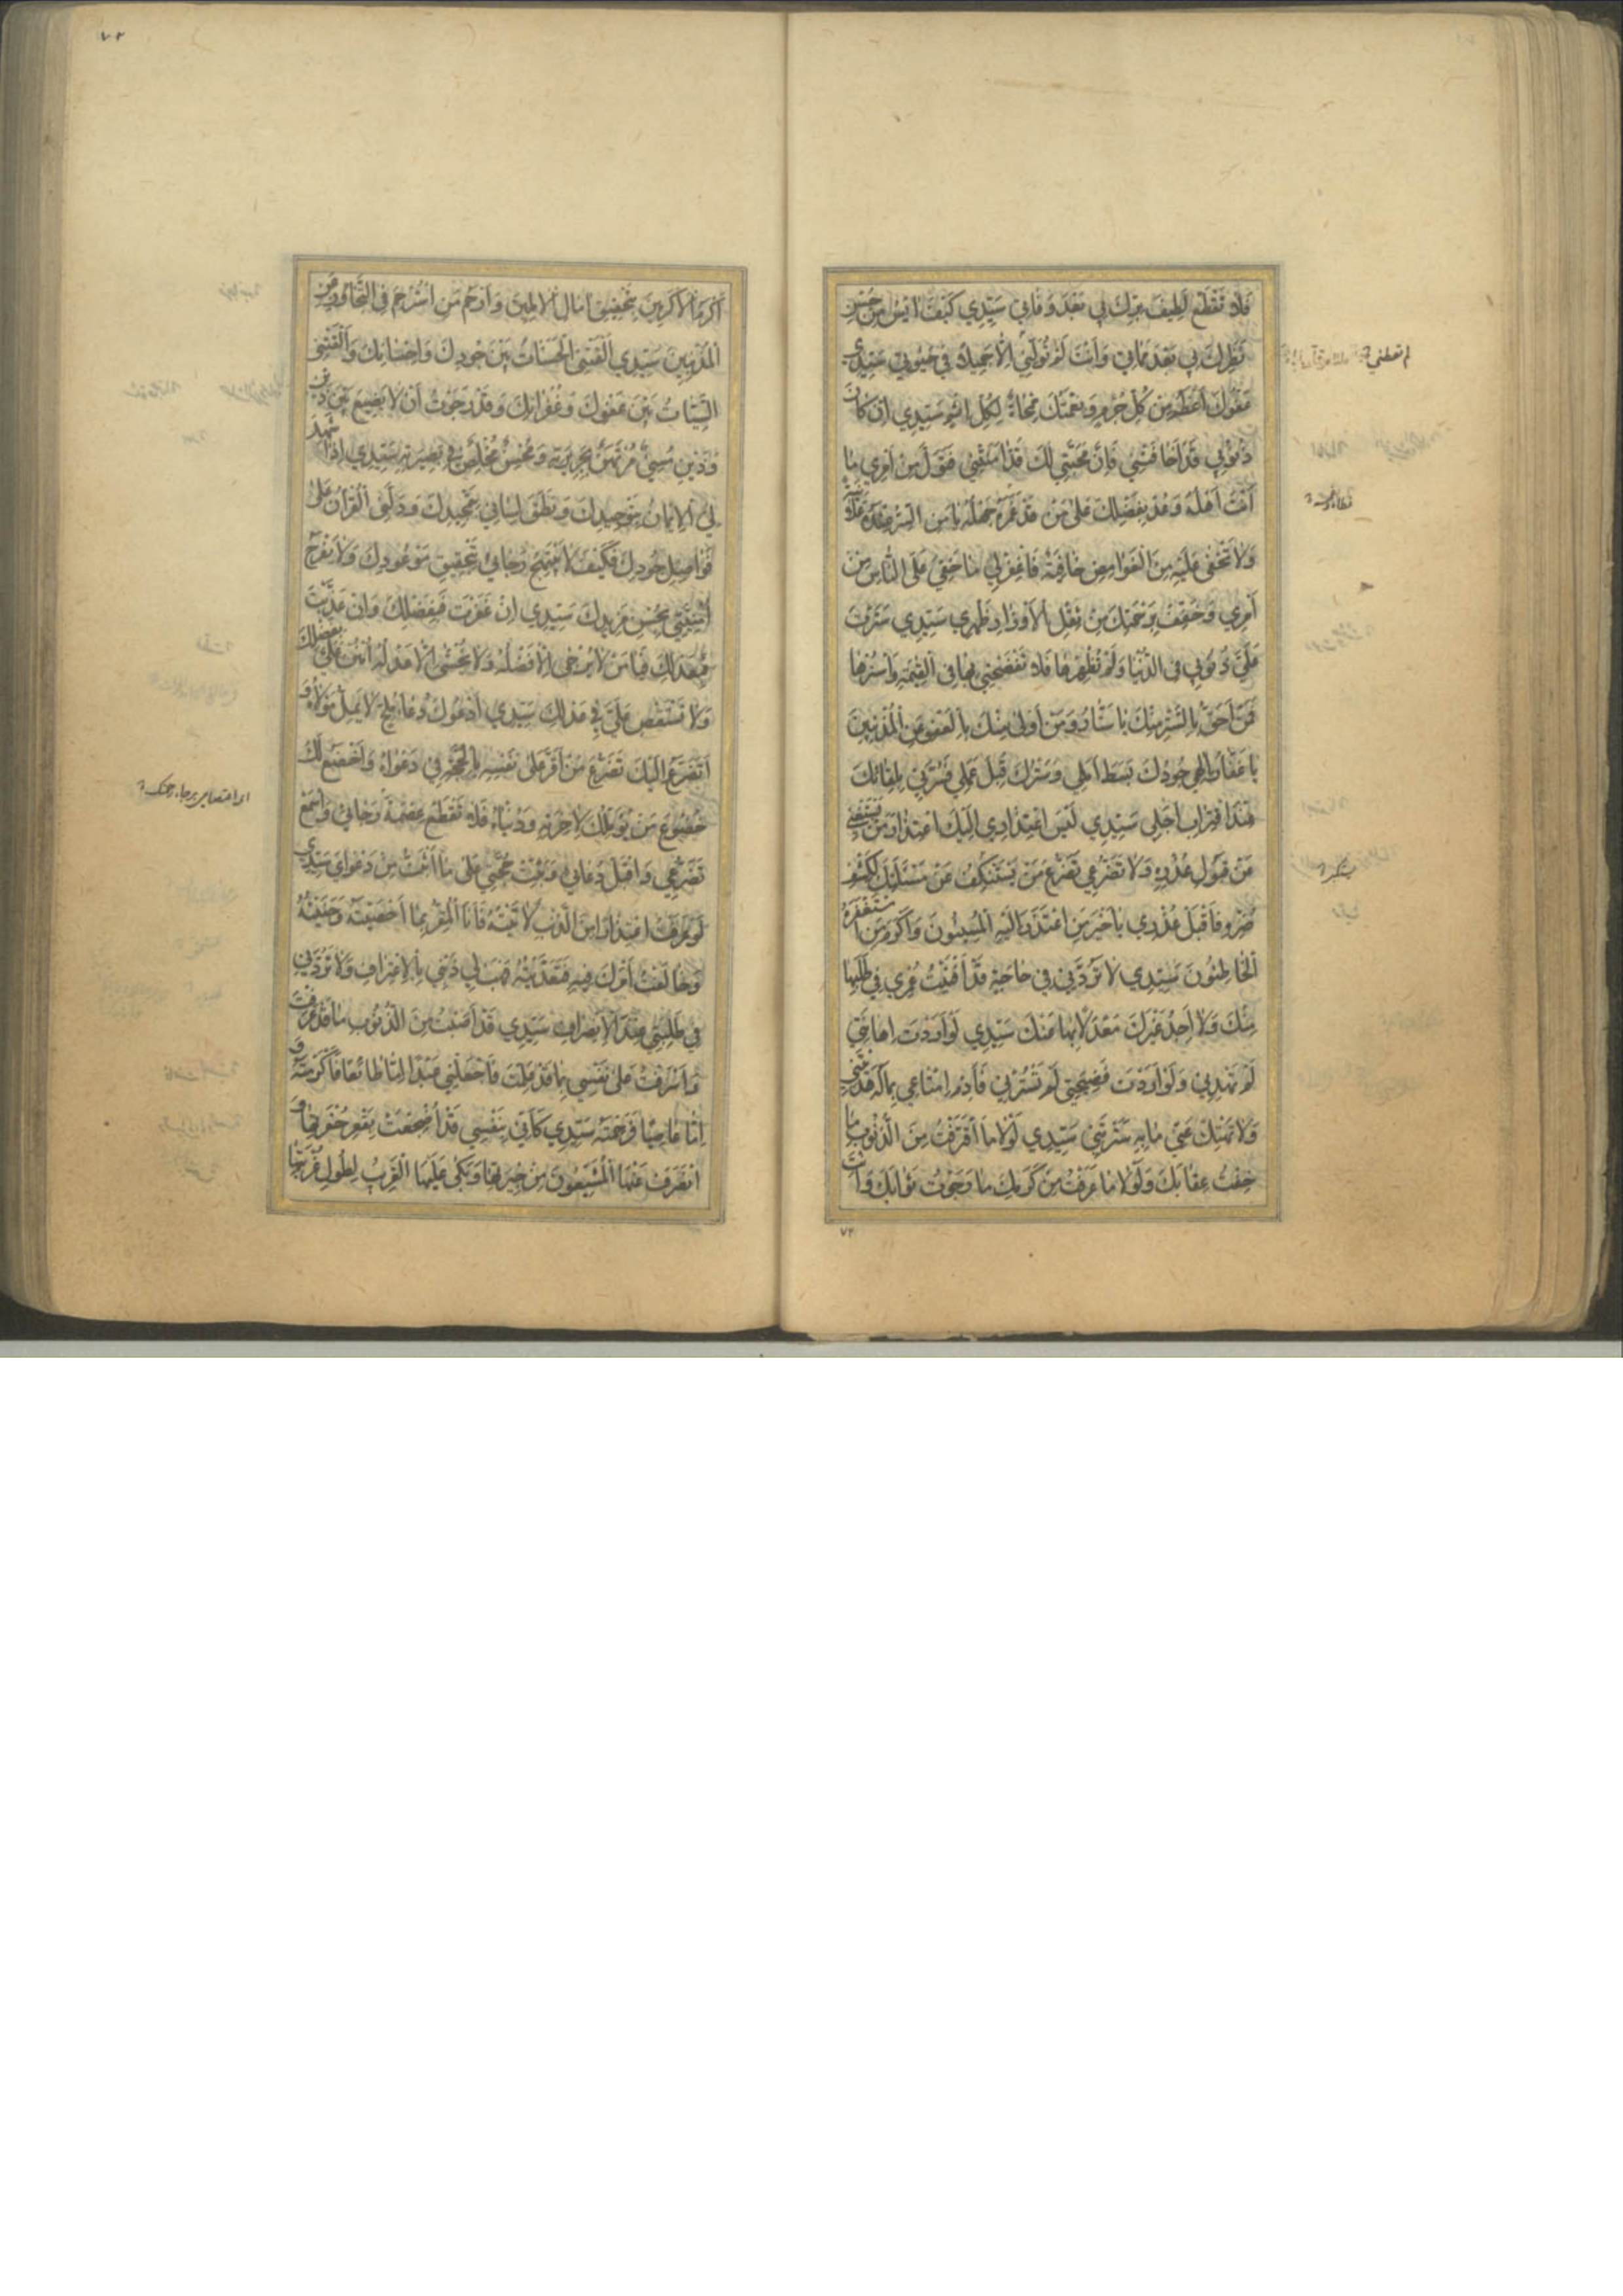 فَلَا تَقْطَعْ لَطِيفَ بِرِّكَ بِي بَعْدَ وَفَاتِي سَيِّدِي كَيْفَ آيَسُ مِنْ حُسْنِ
نَظَرِكَ بِي بَعْدَ مَمَاتِي وَأَنْتَ لَمْ تُوَلِّنِي إِلَّا جَمِيلًا فِي حَيٰوتِي سَيِّدِي
عَفْوُكَ أَعْظَمُ مِنْ كُلِّ جُرْمٍ وَنِعْمَتُكَ لِكُلِّ إِثْمٍ سَيِّدِي إِنْ كَانَ
ذُنُوبِي قَدْ أَخَافَتْنِي فَإِنَّ مَحَبَّتِي لَكَ قَدْ فَتَوَلَّ مِنْ أَمْرِي مَا
أَنْتَ أَهْلُهُ وَعُدْ بِفَضْلِكَ عَلَى مَنْ قَدْ غَمَرَهُ جَهْلُهُ يَا مَنِ السِّرُّ عِنْدَهُ عَلَانِيَةٌ
وَلَا تَخْفَى عَلَيْهِ مِنَ الْغَوَامِضِ خَافِيَةٌ فَاغْفِرْ لِي مَا خَفِيَ عَلَى النَّاسِ مِنْ
أَمْرِي وَخَفِّفْ بِرَحْمَتِكَ مِنْ ثِقْلِ الْأَوْزَارِ ظَهْرِي سَيِّدِي سَتَرْتَ
عَلَيَّ ذُنُوبِي فِي الدُّنْيَا وَلَمْ تُظْهِرْهَا فَلَا تَفْضَحْنِي بِهَا فِي الْقِيٰمَةِ وَاسْتُرْهَا
فَمَنْ أَحَقُّ بِالسَّتْرِ مِنْكَ يَا سَتَّارُ وَمَنْ أَوْلَى مِنْكَ بِالْعَفْوِ عَنِ الْمُذْنِبِينَ
يَا غَفَّارُ إِلٰهِي جُودُكَ بَسَطَ أَمَلِي وَسَتْرُكَ قَبِلَ عَمَلِي فَسُرَّنِي بِلِقَائِكَ
عِنْدَ اقْتِرَابِ أَجَلِي سَيِّدِي لَيْسَ اعْتِذَارِي إِلَيْكَ اعْتِذَارَ مَنْ يَسْتَغْنِي
عَنْ قَبُولِ عُذْرِهِ وَلَا تَضَرُّعِي تَضَرُّعَ مَنْ يَسْتَنْكِفُ عَنْ مَسْئَلَتِكَ لِكَشْفِ
ضُرِّهِ فَاقْبَلْ عُذْرِي يَا خَيْرَ مَنِ اعْتَذَرَ إِلَيْهِ الْمُسِيئُونَ وَأَكْرَمَ مَنِ اسْتَغْفَرَهُ
الْخَاطِئُونَ سَيِّدِي لَا تَرُدَّنِي فِي حَاجَةٍ قَدْ أَفْنَيْتُ عُمْرِي فِي طَلَبِهَا
مِنْكَ وَلَا أَجِدُ غَيْرَكَ مَعْدَلًا بِهَا عَنْكَ سَيِّدِي لَوْ أَرَدْتَ إِهَانَتِي
لَمْ تَهْدِنِي وَلَوْ أَرَدْتَ فَضِيحَتِي لَمْ تَسْتُرْنِي فَأَدِمْ إِمْتَاعِي بِمَا لَهُ هَدَيْتَنِي
وَلَا تَهْتِكْ عَنِّي مَا بِهِ سَتَرْتَنِي سَيِّدِي لَوْلَا مَا اقْتَرَفْتُ مِنَ الذُّنُوبِ مَا
خِفْتُ عِقَابَكَ وَلَوْلَا مَا عَرَفْتُ مِنْ كَرَمِكَ مَا رَجَوْتُ ثَوَابَكَ وَأَنْتَ
۷۲
لم تعطني
۷۲
أَكْرَمُ الْأَكْرَمِينَ بِتَحْقِيقِ آمَالِ الْآمِلِينَ وَأَرْحَمُ مَنِ اسْتُرْحِمَ فِي التَّجَاوُزِ عَنِ
الْمُذْنِبِينَ سَيِّدِي أَلْقَتْنِي الْحَسَنَاتُ بَيْنَ جُودِكَ وَإِحْسَانِكَ وَأَلْقَتْنِي
السَّيِّئَاتُ بَيْنَ عَفْوِكَ وَغُفْرَانِكَ وَقَدْ رَجَوْتُ أَنْ لَا يَضِيعَ بَيْنَ ذَيْنِ
وَذَيْنِ مُسِيءٌ مُرْتَهَنٌ بِجَرِيرَتِهِ وَمُحْسِنٌ مُخْلِصٌ فِي بَصِيرَتِهِ سَيِّدِي إِذَا شَهِدَ
لِيَ الْإِيمَانُ بِتَوْحِيدِكَ وَنَطَقَ لِسَانِي بِتَمْجِيدِكَ وَدَلَّنِي الْقُرْآنُ عَلَى
فَوَاضِلِ جُودِكَ فَكَيْفَ لَا يَبْتَهِجُ رَجَائِي بِتَحْقِيقِ مَوْعُودِكَ وَلَا تَفْرَحُ
أُمْنِيَّتِي بِحُسْنِ مَزِيدِكَ سَيِّدِي إِنْ غَفَرْتَ فَبِفَضْلِكَ وَإِنْ عَذَّبْتَ
فَبِعَدْلِكَ فَيَا مَنْ لَا يُرْجَى إِلَّا فَضْلُهُ وَلَا يُخْشَى إِلَّا عَدْلُهُ امْنُنْ عَلَيَّ بِفَضْلِكَ
وَلَا تَسْتَقْصِ عَلَيَّ فِي عَدْلِكَ سَيِّدِي أَدْعُوكَ دُعَاءَ مُلِحٍّ لَا يَمَلُّ مَوْلَاهُ وَ
أَتَضَرَّعُ إِلَيْكَ تَضَرُّعَ مَنْ أَقَرَّ عَلَى نَفْسِهِ بِالْحُجَّةِ فِي دَعْوَاهُ وَأَخْضَعُ لَكَ
خُضُوعَ مَنْ يُؤَمِّلُكَ لِآخِرَتِهِ وَدُنْيَاهُ فَلَا تَقْطَعْ عِصْمَةَ رَجَائِي وَاسْمَعْ
تَضَرُّعِي وَاقْبَلْ دُعَائِي وَثَبِّتْ حُجَّتِي عَلَى مَا أُثْبِتُ مِنْ دَعْوَايَ سَيِّدِي
لَوْ عَرَفْتُ اعْتِذَارًا مِنَ الذَّنْبِ لَأَتَيْتُهُ فَأَنَا الْمُقِرُّ بِمَا أَحْصَيْتَهُ وَجَنَيْتُهُ
وَخَالَفْتُ أَمْرَكَ فِيهِ فَتَعَدَّيْتُهُ فَهَبْ لِي ذَنْبِي بِالْاِعْتِرَافِ وَلَا تَرُدَّنِي
فِي طَلِبَتِي عِنْدَ الْاِنْصِرَافِ سَيِّدِي قَدْ أَصَبْتُ مِنَ الذُّنُوبِ مَا قَدْ عَرَفْتَ
وَأَسْرَفْتُ عَلَى نَفْسِي بِمَا قَدْ عَلِمْتَ فَاجْعَلْنِي عَبْدًا إِمَّا طَائِعًا فَأَكْرَمْتَهُ وَ
إِمَّا عَاصِيًا فَرَحِمْتَهُ سَيِّدِي كَأَنِّي بِنَفْسِي قَدْ أُضْجِعَتْ بِقَعْرِ حُفْرَتِهَا وَ
انْصَرَفَ عَنْهَا الْمُشَيِّعُونَ مِنْ جِيرَتِهَا وَبَكَى عَلَيْهَا الْغَرِيبُ لِطُولِ غُرْبَتِهَا